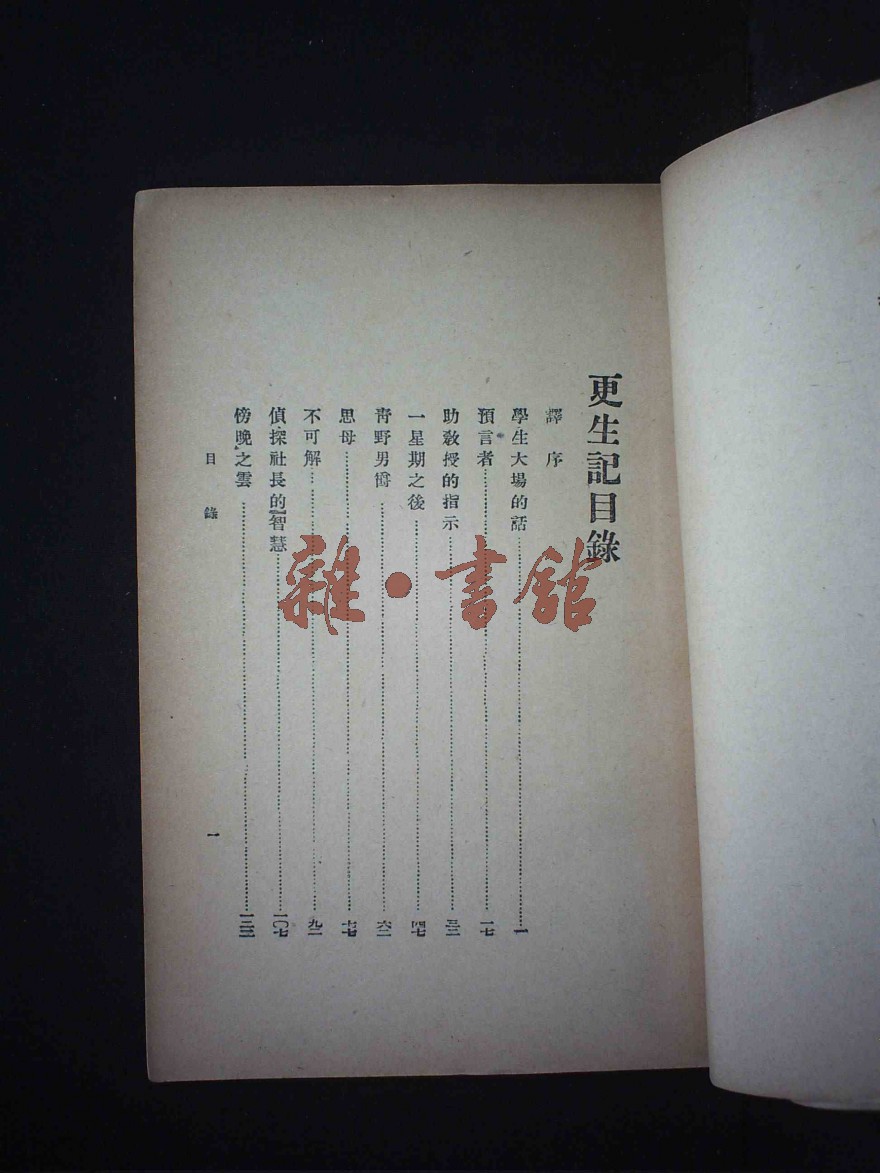 更生記目錄
譯序
學生大場的話……一
預言者……一七
助敎授的指示……三二
一星期之後……四七
靑野男爵……六二
思母……七七
不可解……九二
偵探社長的智慧……一〇七
傍晚之雲……一二三
目錄
一
雜·書館